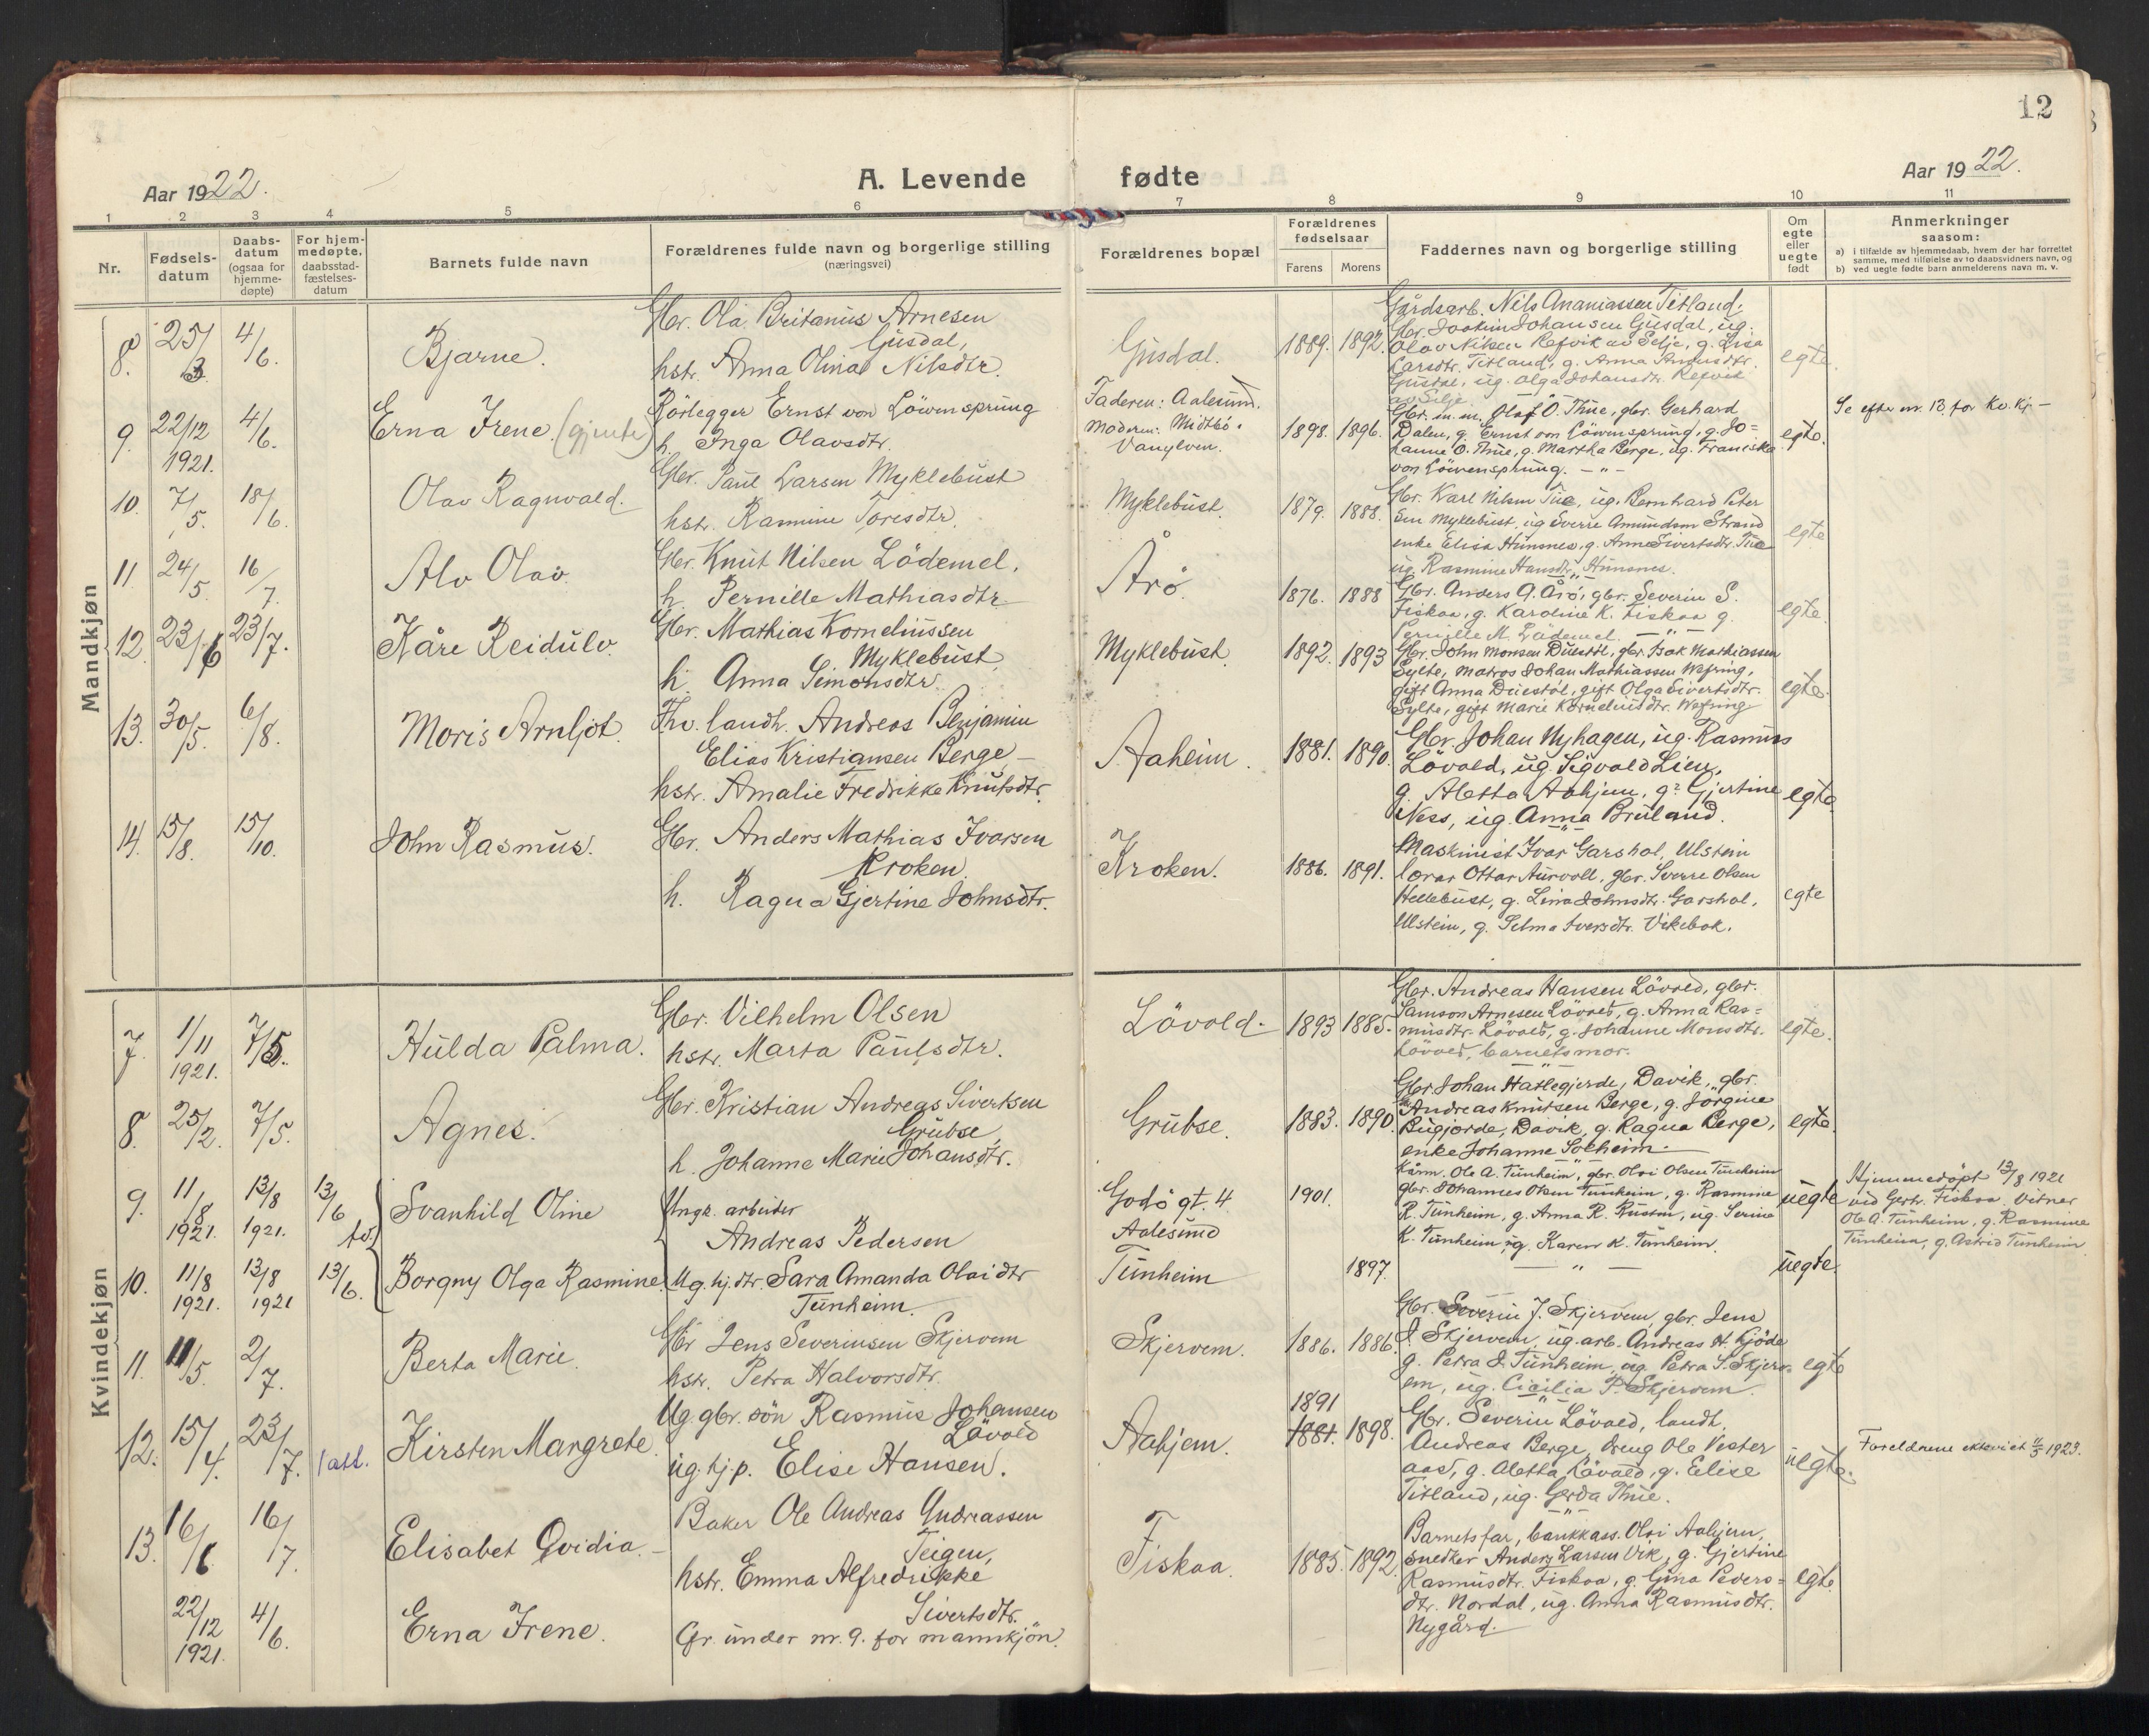 12
Aar 1922.
A. Levende fødte
Aar 1922.
1 2 3 4 5 6 7 8 9 10 11
Nr.
Fødsels-
datum
Daabs-
datum
(ogsaa for
hjemme-
døpte)
For hjem-
medøpte,
daabsstad-
fæstelses-
datum
Barnets fulde navn
Forældrenes fulde navn og borgerlige stilling
(næringsvei)
Forældrenes bopæl
Forældrenes
fødselsaar
Farens Morens
Faddernes navn og borgerlige stilling
Om
egte
eller
uegte
født
Anmerkninger
saasom:
a) i tilfælde av hjemmedaab, hvem der har forrettet
samme, med tilføielse av to daabsvidners navn, og
b) ved uegte fødte barn anmelderens navn m. v.
Mandkjøn
8. 25/3 4/6. Bjarne.
Gbr. Ola Britanus Arnesen
Gusdal,
hstr. Anna Olinae Nilsdtr.
Gusdal. 1889. 1892.
Gårdsarb. Nils Ananiassen Titland.
Gbr. Joakim Johansen Gusdal, ug.
Olav Nilsen Refvik av Selje, g. Lisa
Larsdtr. Titland, g. Anna
Gusdal, ug. Olga Johansdtr. Refvik
av Selje.
egte.
9. 22/12 1921. 4/6. Erna Irene. (gjente)
Rörlegger Ernst von Löwensprung
h. Inga Olavsdtr.
Faderen: Aalesund.
Moderen: Midtbö.
Vanylven.
1898. 1896.
Gbr. m.m. Olaf O. Thue, gbr. Gerhard
Dalen, g. Ernst von Löwensprung, g. Jo=
hanne O. Thue, g. Martha Berge, ug. Franciska
von Löwensprung. – " –
egte.
Se efter nr. 13. for Kv. kj. –
10. 7/5. 18/6. Olav Ragnvald.
Gbr. Paul Larsen Myklebust
hstr. Rasmine Toresdtr.
Myklebust. 1879. 1888.
Gbr. Karl Nilsen Tue, ug. Bernhard Peter
sen Myklebust, ug Sverre Amundsen Strand
enke Elisa Hunsnes, g. Anne Sivertsdtr. Tue
ug. Rasmine Hansdtr. Hunsnes.
egte
11. 24/5. 16/7. Alv Olav.
Gbr. Knut Nilsen Lödemel.
h. Pernille Mathiasdtr.
Årö. 1876. 1888
Gbr. Anders A. Årö, gbr. Severin S.
Fiskaa, g. Karoline K. Fiskaa g.
Pernille M. Lödemel. – " –
egte.
12. 23/6 23/7. Kåre Reidulv.
Gbr. Mathias Korneliussen
Myklebust
h. Anna Simonsdtr.
Myklebust. 1892. 1893
Gbr. John Monsen Duestöl, gbr. Isak Mathiassen
Sylte, matros Johan Mathiassen Wefring,
gift Anna Duestöl, gift Olga Sivertsdtr.
Sylte, gift Marie Korneliusdtr. Wefring
egte.
13. 30/5. 6/8. Moris Arnljot.
Fhv. landh. Andreas Benjamin
Elias Kristiansen Berge, –
hstr. Amalie Fredrikke Knutsdtr.
Aaheim. 1881. 1890.
Gbr. Johan Nyhagen, ug. Rasmus
Lövold, ug. Sigvald Lien,
g. Aletta Aahjem, g. Gjertine
Ness, ug. Anna Bruland.
egte
14. 15/8. 15/10. John Rasmus.
Gbr. Anders Mathias Ivarsen
Kroken.
h. Ragna Gjertine Johnsdtr.
Kroken. 1886. 1891.
Maskinist Ivar Garshol, Ulstein
lærar Ottar Aurvoll, gbr. Sverre Olsen
Hellebust, g. Lina Johnsdtr. Garshol,
Ulstein, g. Selma Iversdtr. Vikebak.
egte
Kvindekjøn
7. 1/11 1921. 7/5. Hulda Palma.
Gbr. Vilhelm Olsen
hstr. Marta Paulsdtr.
Lövold. 1893 1885.
Gbr. Andreas Hansen Lövold, gbr.
Samson Arnesen Lövold, g. Anna Ras=
musdtr. Lövold, g. Johanne Monsdtr.
Lövold, barnets mor.
egte.
8. 25/2. 7/5. Agnes.
Gbr. Kristian Andreas Sivertsen
Grubse,
h. Johanne Marie Johansdtr.
Grubse. 1883. 1890.
Gbr Johan Hatlegjerde, Davik, gbr.
Andreas Knutsen Berge, g. Jörgine
Rugjorde, Davik, g. Ragna Berge,
enke Johanne Solheim.
egte.
9. 11/8 1921. 13/8 1921. 13/6 tv. Svanhild Oline
Ungk. arbeider
Andreas Pedersen
Godö gt. 4
Aalesund
1901.
Kårm. Ole A. Tunheim, gbr. Olai Olsen Tunheim
gbr. Johannes Olsen Tunheim, g. Rasmine
R. Tunheim, g. Anna R. Rusten, ug. Serine
K. Tunheim, ug. Karen K. Tunheim.
uegte
Hjemmedöpt 13/8 1921
ved Gerh. Fiskaa. Vitner
Ole A. Tunheim, g. Rasmine
Tunheim, g. Astrid Tunheim
10. 11/8 1921. 13/8 1921 13/6. Borgny Olga Rasmine
Ug. hj. dtr. Sara Amanda Olaidtr
Tunheim.
Tunheim 1897.
– " –
uegte.
11. 11/5. 2/7. Berta Marie.
Gbr Jens Severinsen Skjervem
hstr. Petra Halvorsdtr.
Skjervem. 1886. 1886.
Gbr. Severin J. Skjervem, gbr. Jens
J. Skjervem, ug. arb. Andreas H. Kjöde
g. Petra J. Tunheim, ug. Petra S. Skjerv-
em, ug. Cicilia P. Skjervem.
egte
12. 15/4. 23/7. 1 att. Kirsten Margrete.
Ug. gbr. sön Rasmus Johansen
Lövold
ug. hj. p. Elise Hansen.
Aahjem. 1891 1881. 1898.
Gbr. Severin Lövold, landh.
Andreas Berge, dreng Ole Vester
aas, g. Aletta Lövold, g. Elise
Titland, ug. Gerda Thue.
uegte.
Foreldrene ekteviet 11/3 1923.
13. 16/6 16/7. Elisabet Ovidia. –
Baker Ole Andreas Andreassen
Teigen,
hstr. Emma Alfredrikke
Sivertsdtr.
Fiskaa. 1885. 1892.
Barnets far, bankkass. Olai Aahjem,
snedker Anders Larsen Vik, g. Gjertine
Rasmusdtr. Fiskaa, g. Gina Peders=
dtr. Nordal, ug. Anna Rasmusdtr.
Nygård.
egte
22/12 1921. 4/6. Erna Irene.
Cfr. under nr. 9. for mannkjön.